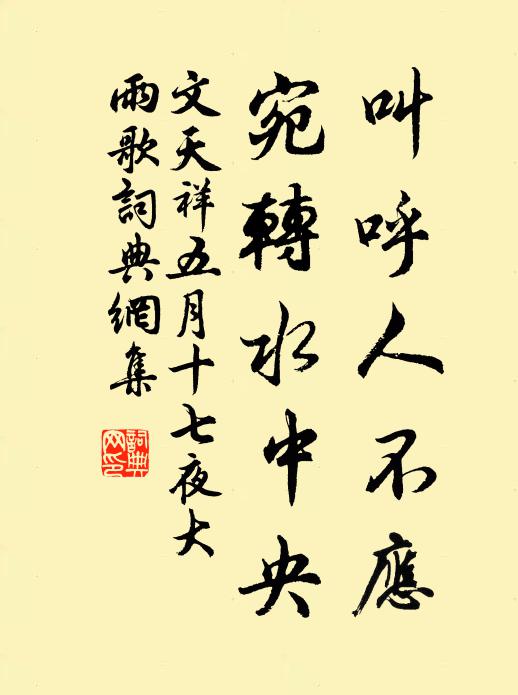 叫呼人不應
宛轉水中央
文天祥五月十七夜大
雨歌詞典網集
詞典
网印